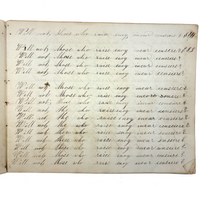 Will not, those who raise envy incur censure?
Will not, those who raise envy incur censure?
Will not, those who raise envy incur censure?
Will not, those who raise envy incur censure?
Will not, those who raise envy incur censure?
Will not, those who raise envy incur censure?
Will not, those who raise envy incur censure?
Will not, those who raise envy incur censure?
Will not, those who raise envy incur censure?
Will not, those who raise envy incur censure?
Will not, those who raise envy incur censure?
Will not, those who raise envy incur censure?
Will not, those who raise envy incur censure?
Will not, those who raise envy incur censure?